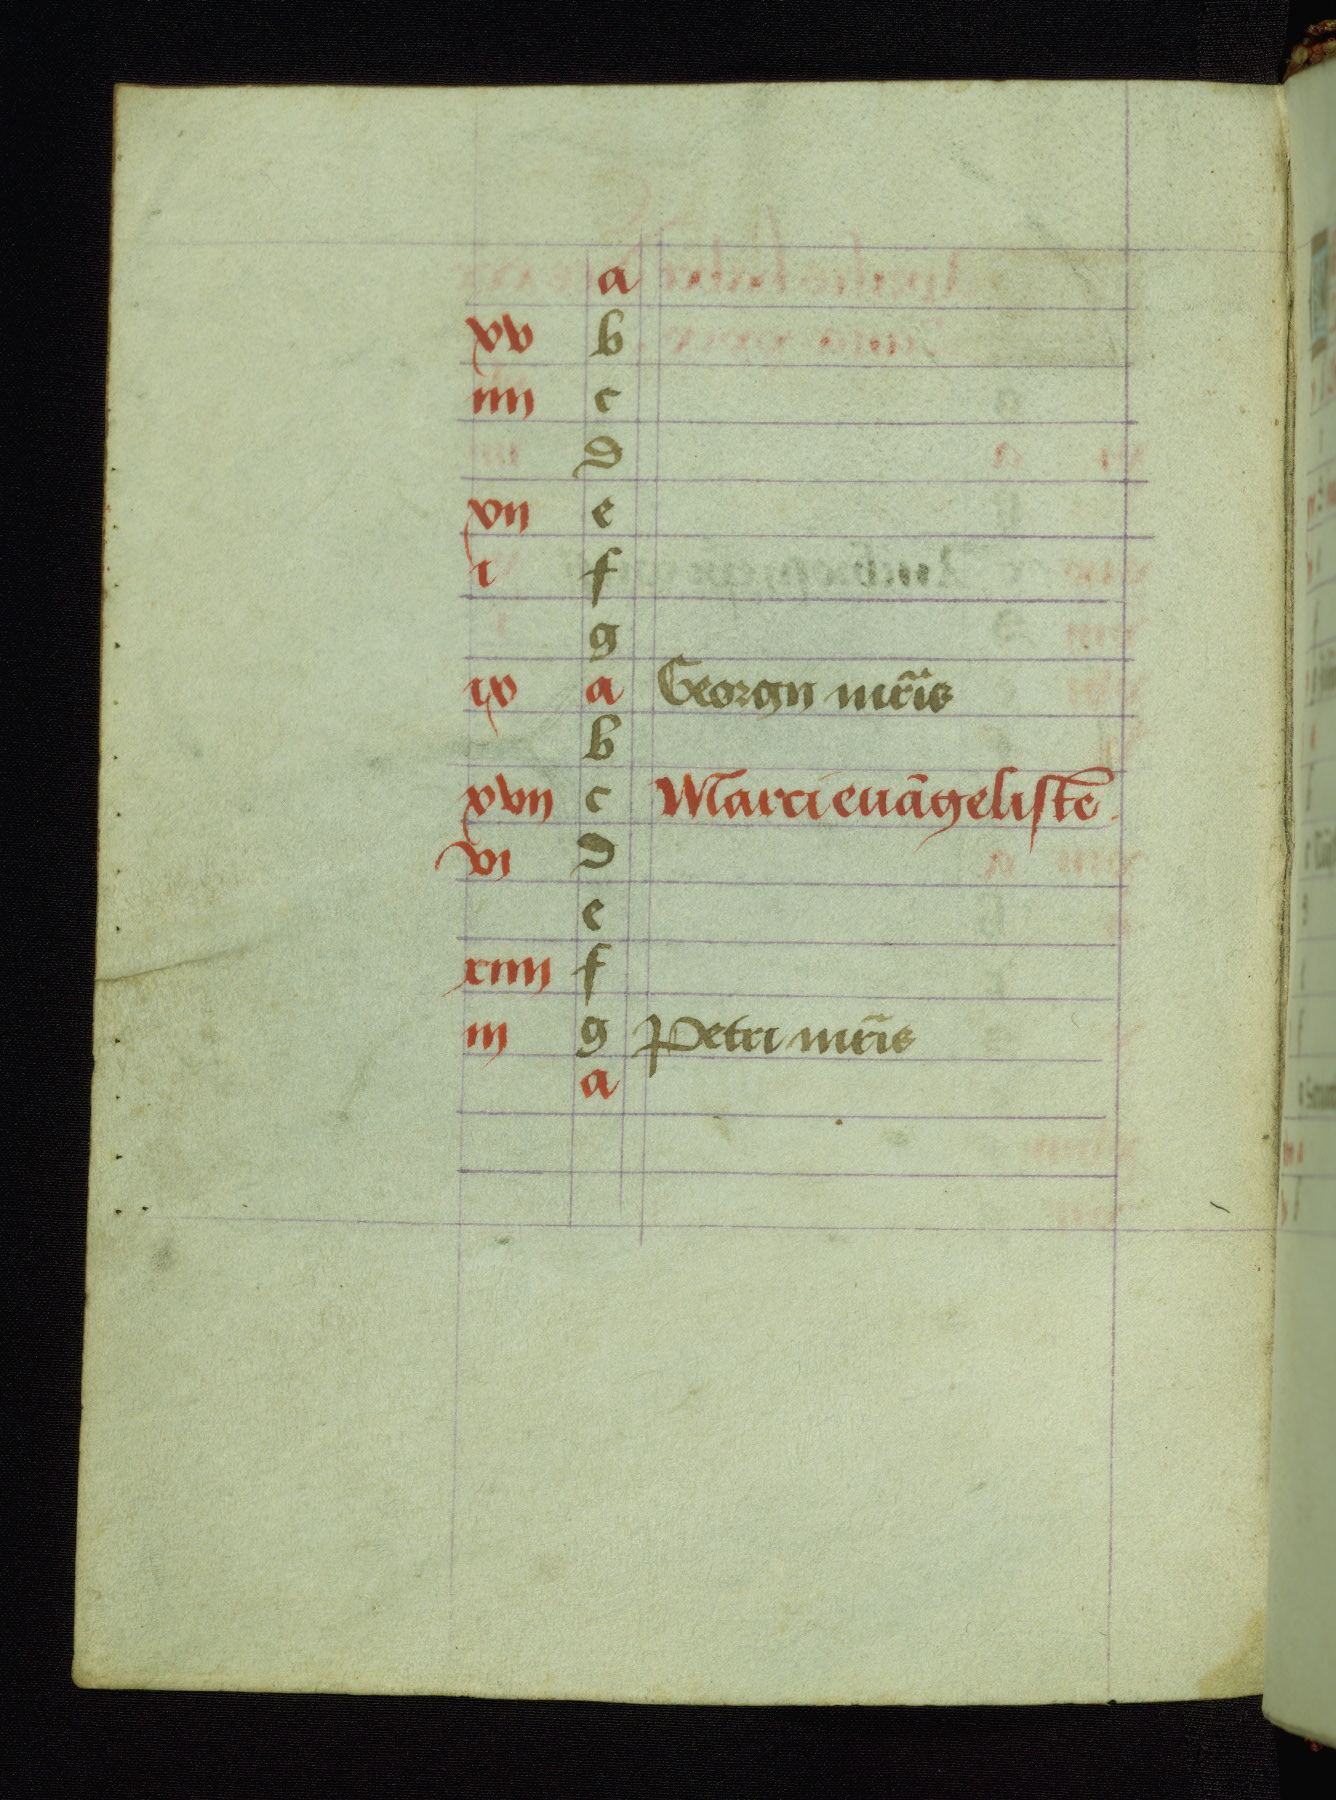 a
xv b
iiii c
d
xii e
i f
g
ix a Georgii mr̃is
b
xvii c Marci euãgeliste
vi d
e
xiiii f
iii g Petri mr̃is
a